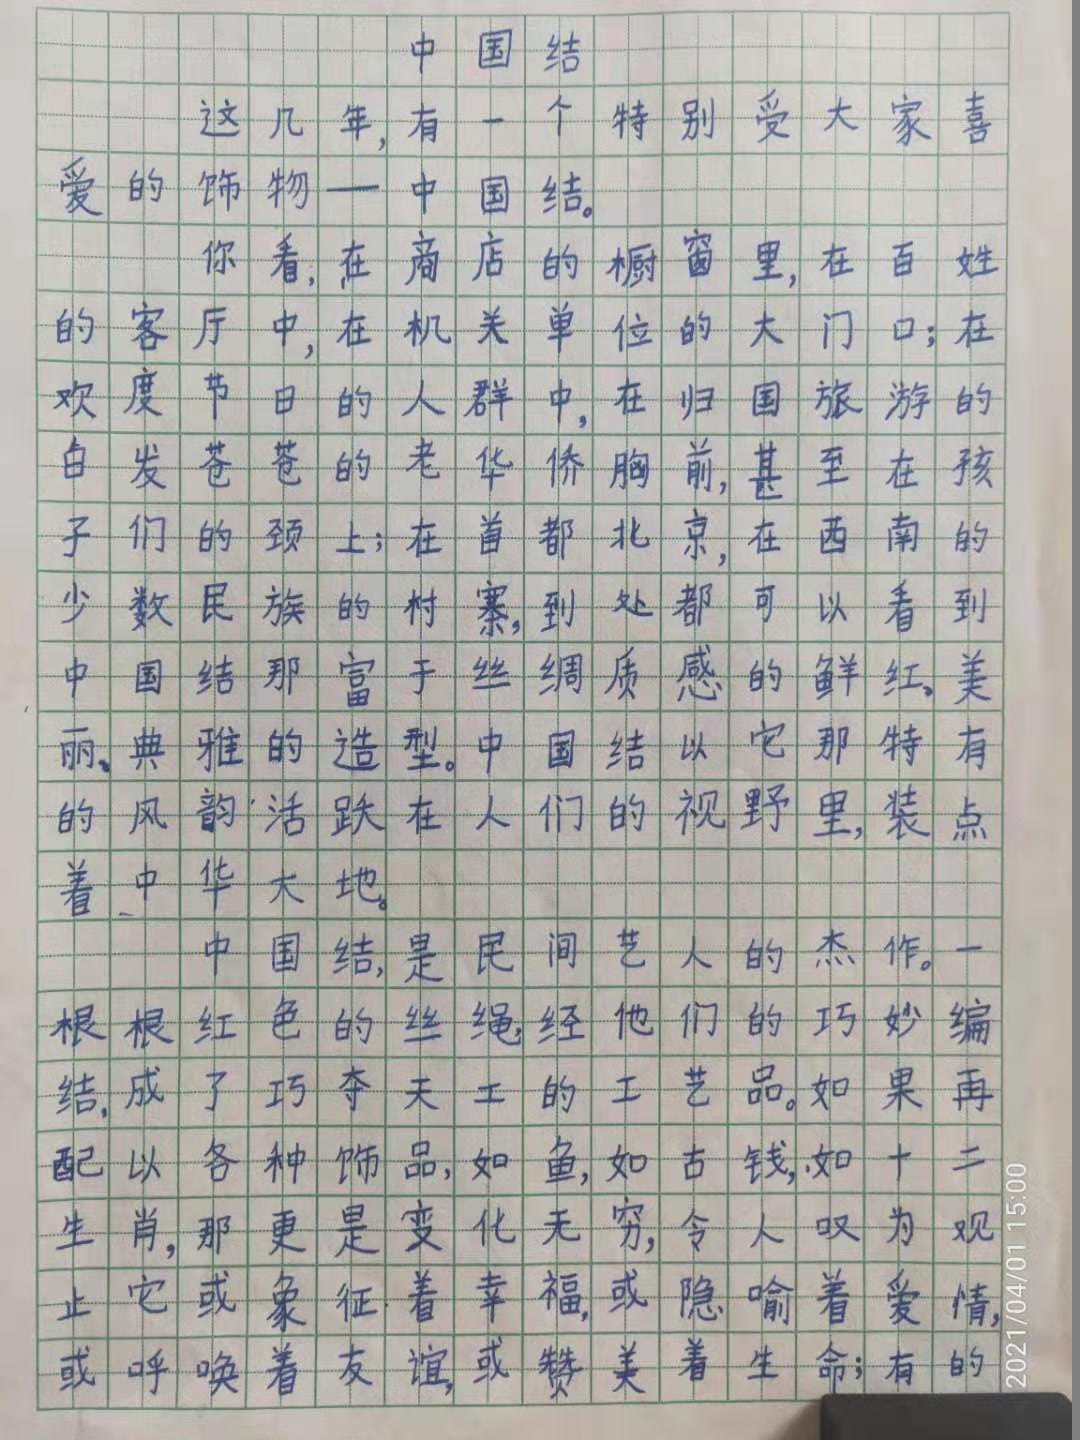 中国结
这几年,有一个特别受大家喜
爱的饰物——中国结。
你看,在商店的橱窗里,在百姓
的客厅中,在机关单位的大门口;在
欢度节日的人群中,在归国旅游的
白发苍苍的老华侨胸前,甚至在孩
子们的颈上;在首都北京,在西南的
少数民族的村寨,到处都可以看到
中国结那富于丝绸质感的鲜红、美
丽、典雅的造型。中国结以它那特有
的风韵活跃在人们的视野里,装点
着中华大地。
中国结,是民间艺人的杰作。一
根根红色的丝绳,经他们的巧妙编
结,成了巧夺天工的工艺品。如果再
配以各种饰品,如鱼,如古钱,如十二
生肖,那更是变化无穷,令人叹为观
止它或象征着幸福,或隐喻着爱情,
或呼唤着友谊,或赞美着生命;有的
2021/04/01 15:00